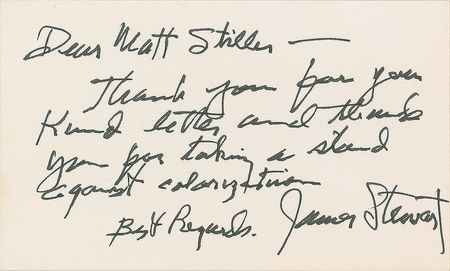 Dear Matt Stiller —
Thank you for your
Kind letter and thank
you for taking a stand
against colorization
Best Regards. James Stewart